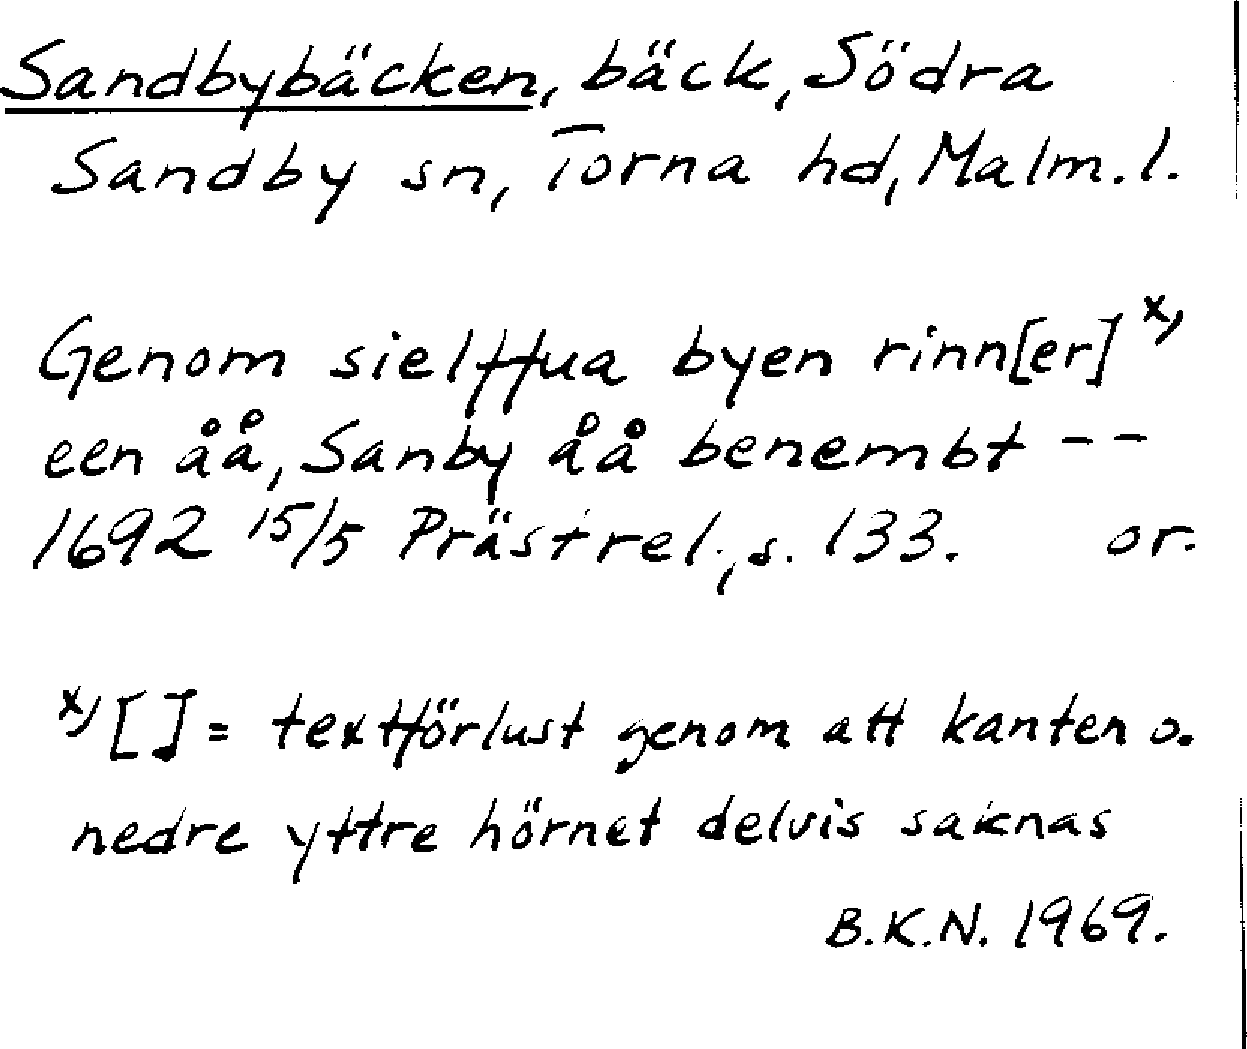 Sandbybäcken, bäck, Södra
Sandby sn, Torna hd, Malm. l.
Genom sielffua byen rinn[er] x)
een åå, Sanby åå benembt - -
1692 15/5 Prästrel., s. 133. or.
x) [ ] = textförlust genom att kanten o.
nedre yttre hörnet delvis saknas
B.K.N. 1969.